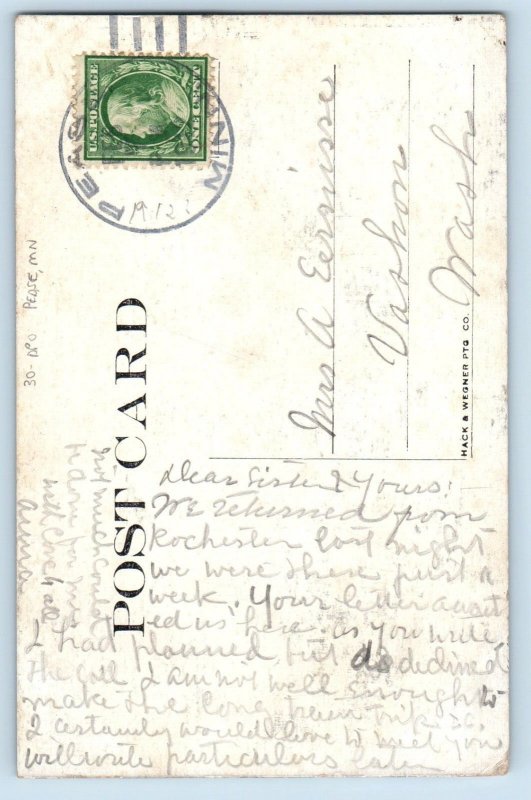 U.S. POSTAGE
ONE CENT
PEASE
MINN
1912
30- DPO PEASE, MN
POST CARD
Mrs A Eernisse
Vashon
Wash
HACK & WEGNER PTG CO.
Dear Sister & Yours:
We returned from
Rochester last night
we were there just a
week. Your letter await
ed us here. as you write
I had planned, but do declined
the call I am not well enough to
make the long train trip
I certainly would love to meet you
will write particulars later
not much could
be done for me
with love to all